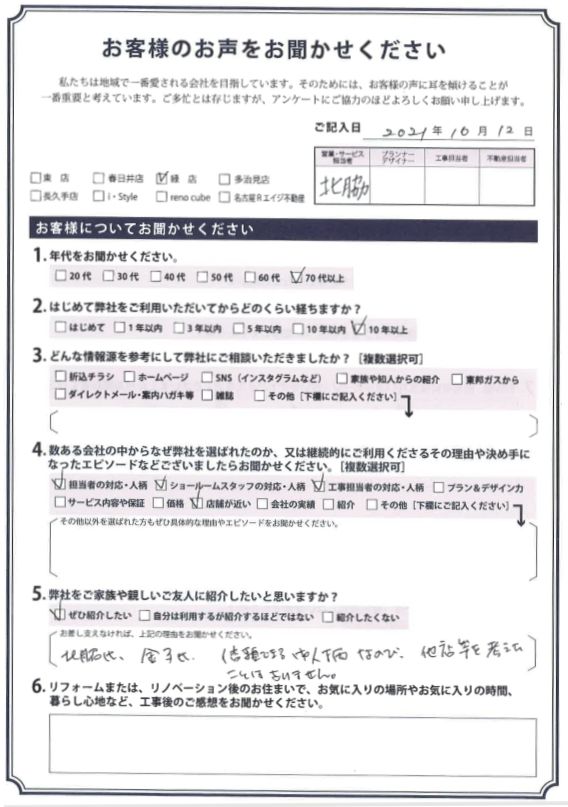 お客様のお声をお聞かせください
私たちは地域で一番愛される会社を目指しています。そのためには、お客様の声に耳を傾けることが
一番重要と考えています。ご多忙とは存じますが、アンケートにご協力のほどよろしくお願い申し上げます。
ご記入日 2021年10月12日
営業・サービス担当者 プランナーデザイナー 工事担当者 不動産担当者
北脇
□東 店 □春日井店 ☑緑 店 □多治見店
□長久手店 □i・Style □reno cube □名古屋Rエイジ不動産
お客様についてお聞かせください
1. 年代をお聞かせください。
□20代 □30代 □40代 □50代 □60代 ☑70代以上
2. はじめて弊社をご利用いただいてからどのくらい経ちますか？
□はじめて □1年以内 □3年以内 □5年以内 □10年以内 ☑10年以上
3. どんな情報源を参考にして弊社にご相談いただきましたか？［複数選択可］
□折込チラシ □ホームページ □SNS（インスタグラムなど） □家族や知人からの紹介 □東邦ガスから
□ダイレクトメール・案内ハガキ等 □雑誌 □その他［下欄にご記入ください］
4. 数ある会社の中からなぜ弊社を選ばれたのか、又は継続的にご利用くださるその理由や決め手に
なったエピソードなどございましたらお聞かせください。［複数選択可］
☑担当者の対応・人柄 ☑ショールームスタッフの対応・人柄 ☑工事担当者の対応・人柄 □プラン&デザイン力
□サービス内容や保証 □価格 ☑店舗が近い □会社の実績 □紹介 □その他［下欄にご記入ください］
その他以外を選ばれた方もぜひ具体的な理由やエピソードをお聞かせください。
5. 弊社をご家族や親しいご友人に紹介したいと思いますか？
☑ぜひ紹介したい □自分は利用するが紹介するほどではない □紹介したくない
お差し支えなければ、上記の理由をお聞かせください。
北脇氏、金子氏、信頼できるお人柄なので、他店等を考えた
ことはありません。
6. リフォームまたは、リノベーション後のお住まいで、お気に入りの場所やお気に入りの時間、
暮らし心地など、工事後のご感想をお聞かせください。